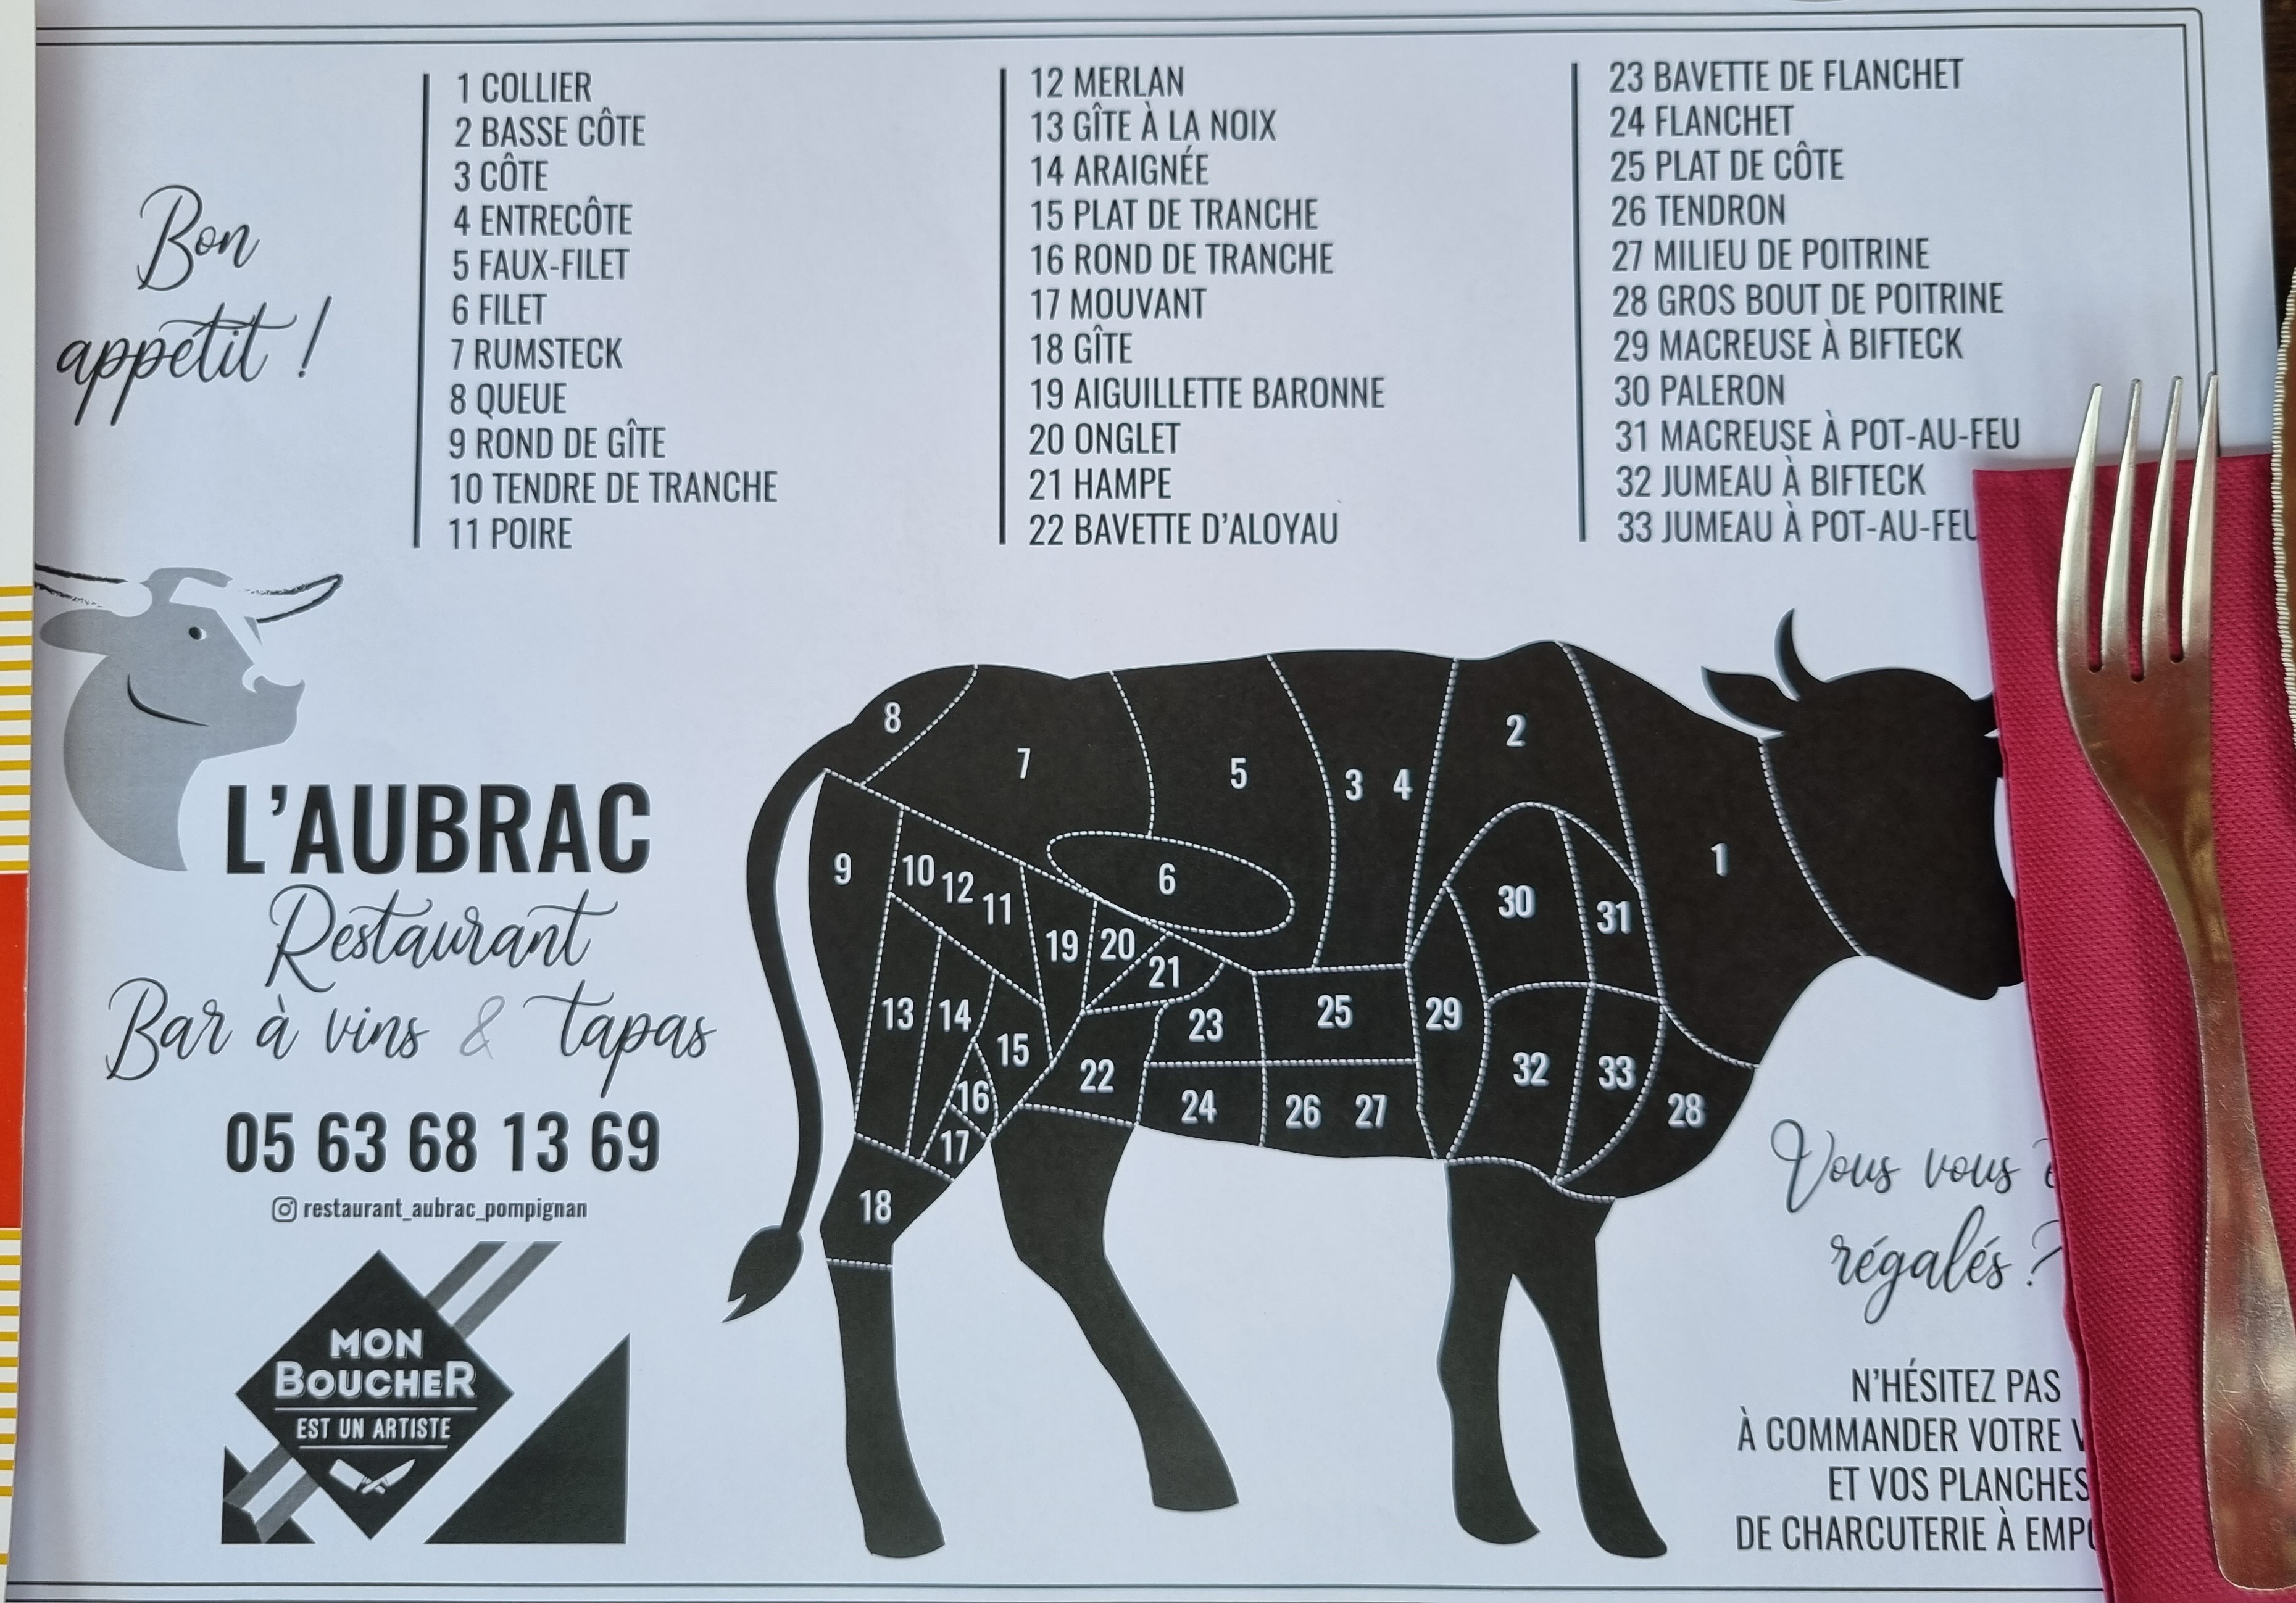 Bon
appétit !
1 COLLIER
2 BASSE CÔTE
3 CÔTE
4 ENTRECÔTE
5 FAUX-FILET
6 FILET
7 RUMSTECK
8 QUEUE
9 ROND DE GÎTE
10 TENDRE DE TRANCHE
11 POIRE
12 MERLAN
13 GÎTE À LA NOIX
14 ARAIGNÉE
15 PLAT DE TRANCHE
16 ROND DE TRANCHE
17 MOUVANT
18 GÎTE
19 AIGUILLETTE BARONNE
20 ONGLET
21 HAMPE
22 BAVETTE D'ALOYAU
23 BAVETTE DE FLANCHET
24 FLANCHET
25 PLAT DE CÔTE
26 TENDRON
27 MILIEU DE POITRINE
28 GROS BOUT DE POITRINE
29 MACREUSE À BIFTECK
30 PALERON
31 MACREUSE À POT-AU-FEU
32 JUMEAU À BIFTECK
33 JUMEAU À POT-AU-FEU
L'AUBRAC
Restaurant
Bar à vins & tapas
05 63 68 13 69
restaurant_aubrac_pompignan
MON
BOUCHER
EST UN ARTISTE
8
7
5
3 4
2
1
9
10
12
11
6
30
31
19
20
21
13
14
15
23
25
29
22
16
17
24
26 27
32
33
28
18
Vous vous
régalés ?
N'HÉSITEZ PAS
À COMMANDER VOTRE
ET VOS PLANCHES
DE CHARCUTERIE À